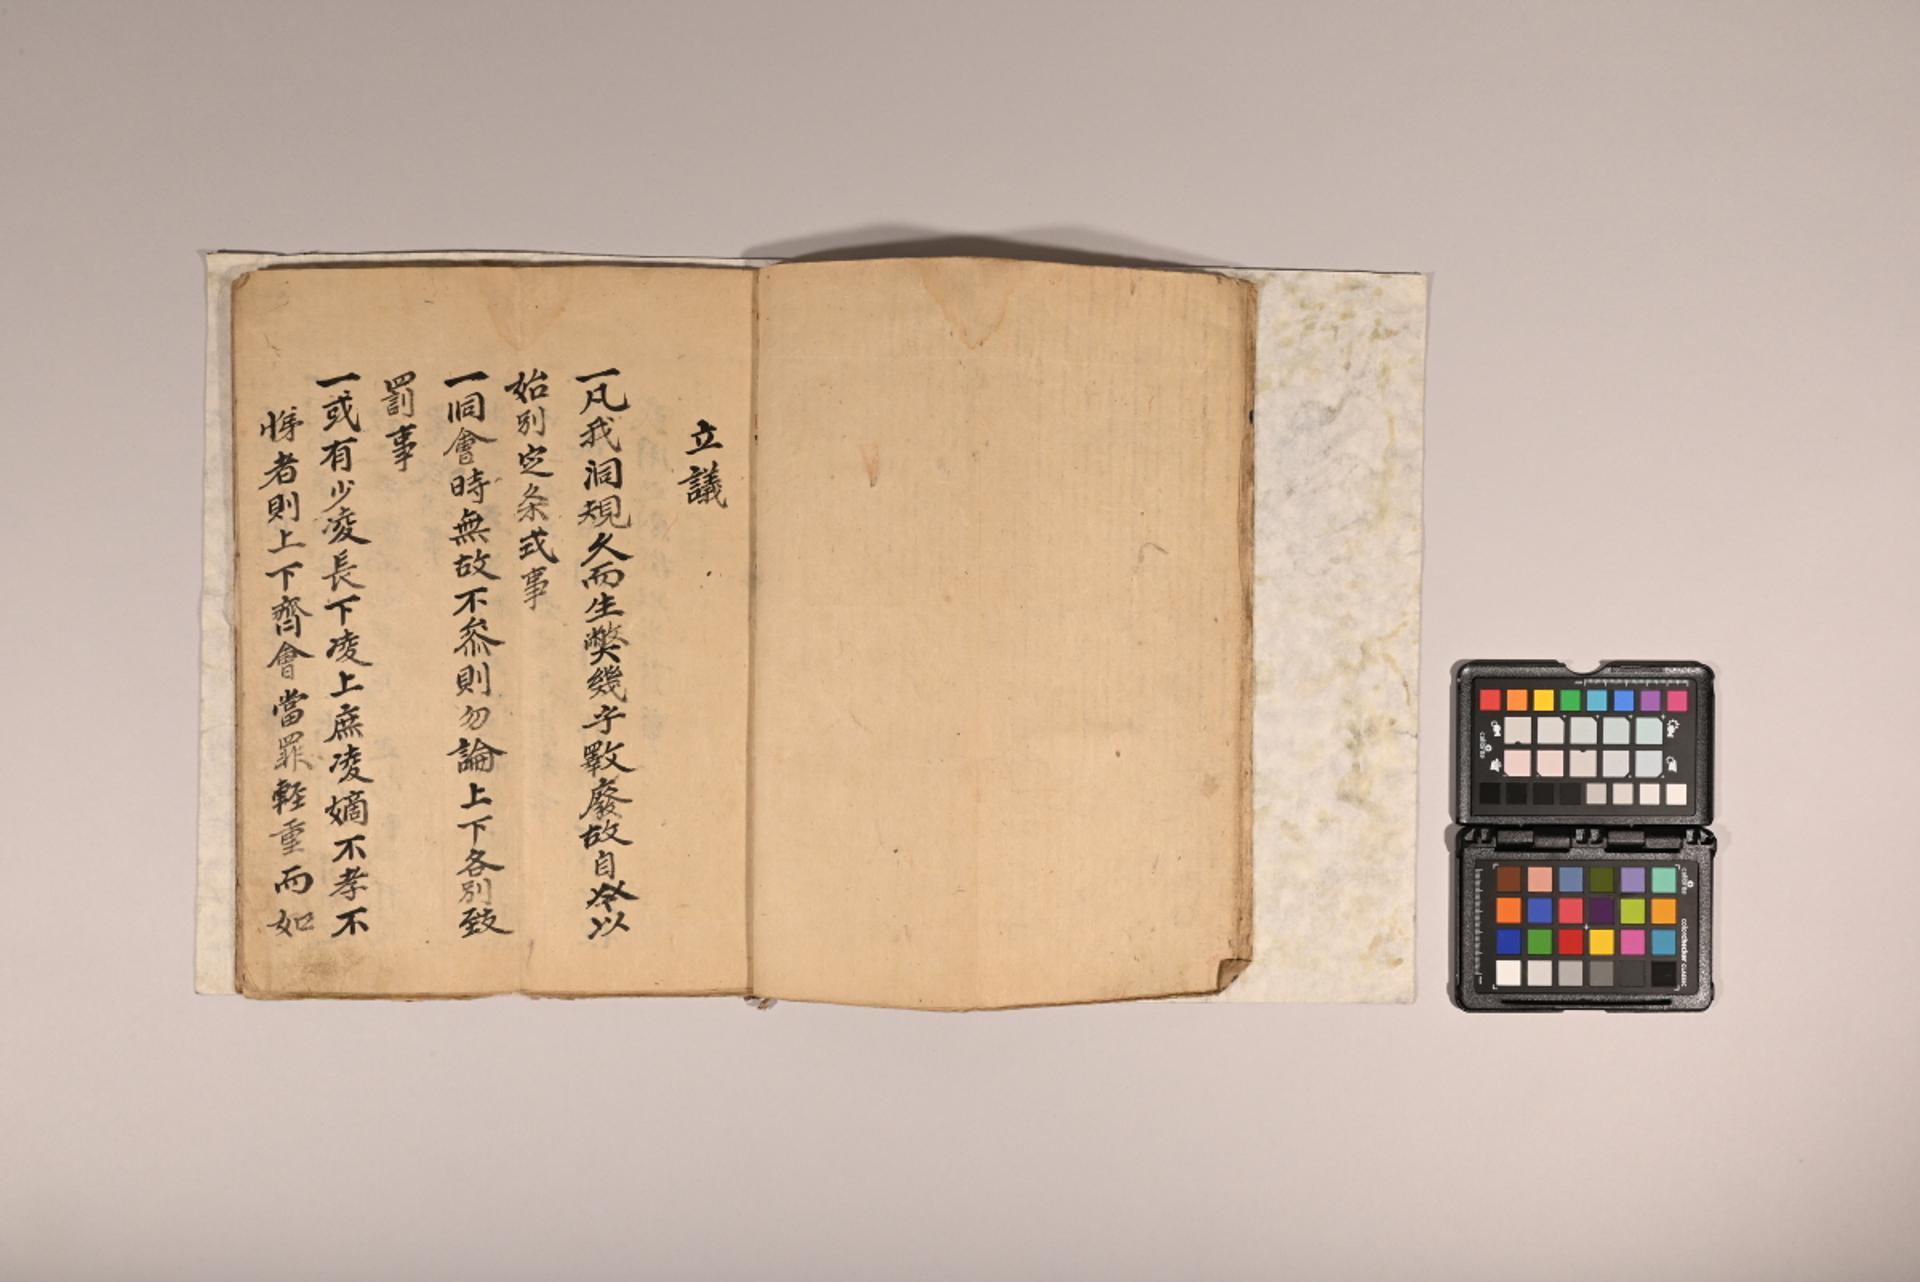 立議
一凡我洞規久而生弊幾乎斁廢故自今以
始別定条式事
一洞會時無故不參則勿論上下各別致
罰事
一或有少凌長下凌上庶凌嫡不孝不
悌者則上下齊會當罪輕重而如